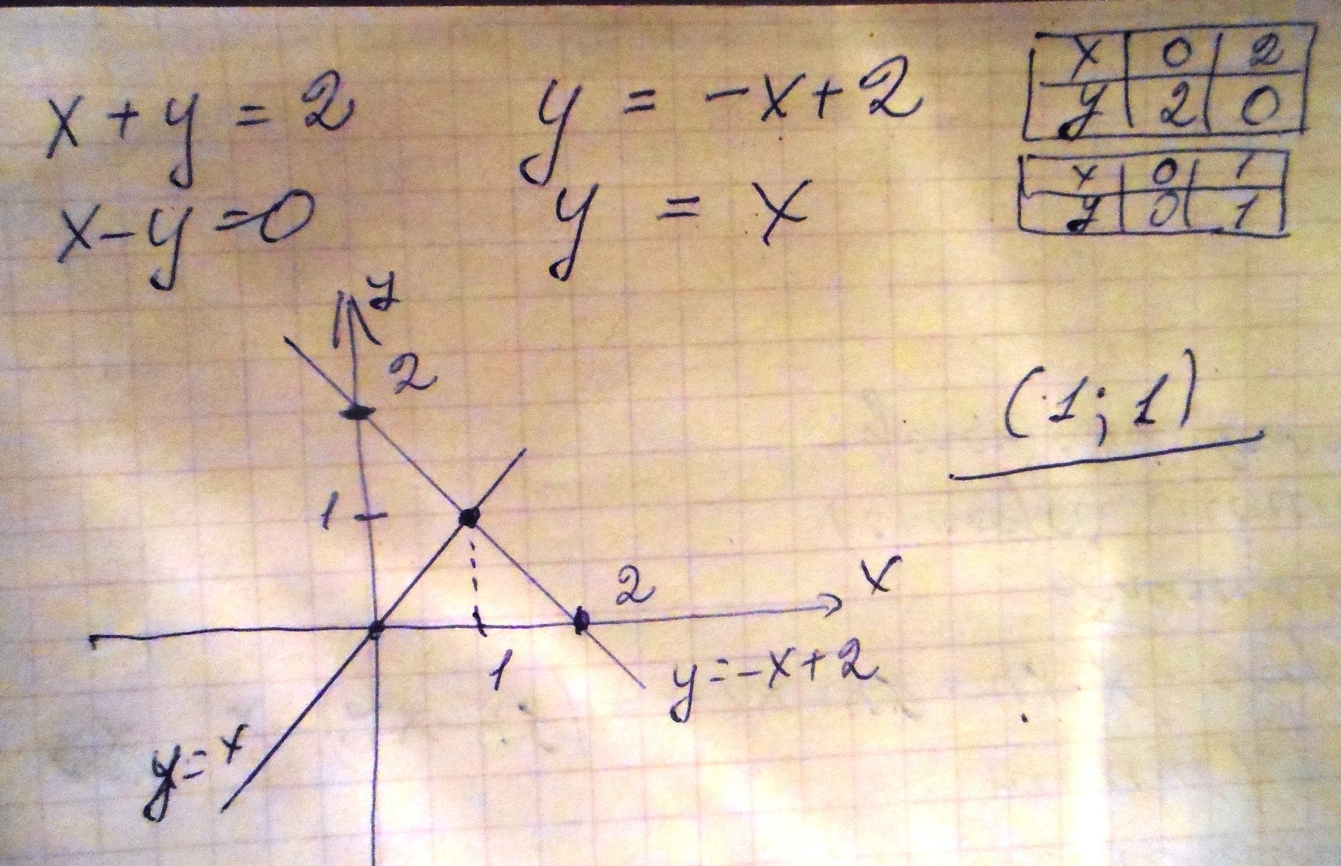 x + y = 2
y = -x + 2
x 0 2
y 2 0
x - y = 0
y = x
x 0 1
y 0 1
y
2
(1; 1)
1
2
x
1
y = -x + 2
y = x